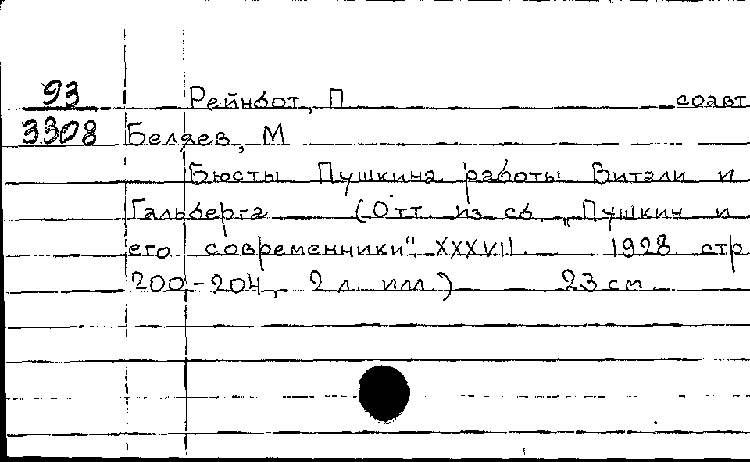 93 Рейнбот, П соавт
3308 Беляев, М
Бюсты Пушкина работы Витали и
Гальберга (Отт. из сб. „Пушкин и
его современники". XXXVII. 1928 стр
200-204, 2 л. илл.) 23 см